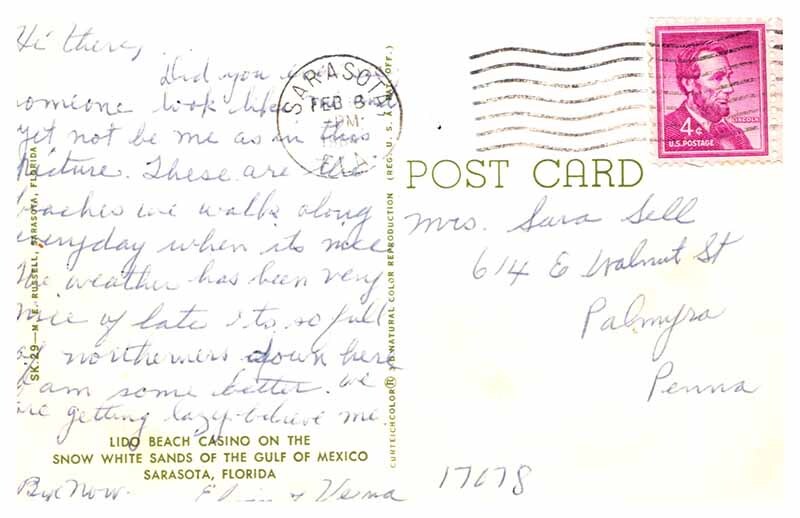 Hi there,
Did you ever see
someone look like me and
yet not be me as in this
picture. These are the
beaches we walk along
everyday when its nice
The weather has been very
nice of late & to, so full
of northerners down here
I am some better. We
are getting lazy-believe me
LIDO BEACH CASINO ON THE
SNOW WHITE SANDS OF THE GULF OF MEXICO
SARASOTA, FLORIDA
Bye Now. & Verna
SK.29—M. E. RUSSELL, SARASOTA, FLORIDA
SARASOTA
FEB 8
PM
FLA.
CURTEICHCOLOR® 3-D NATURAL COLOR REPRODUCTION (REG. U.S.A. PAT. OFF.)
LINCOLN
4¢
U.S. POSTAGE
POST CARD
Mrs. Sara Sell
614 E Walnut St
Palmyra
Penna
17078